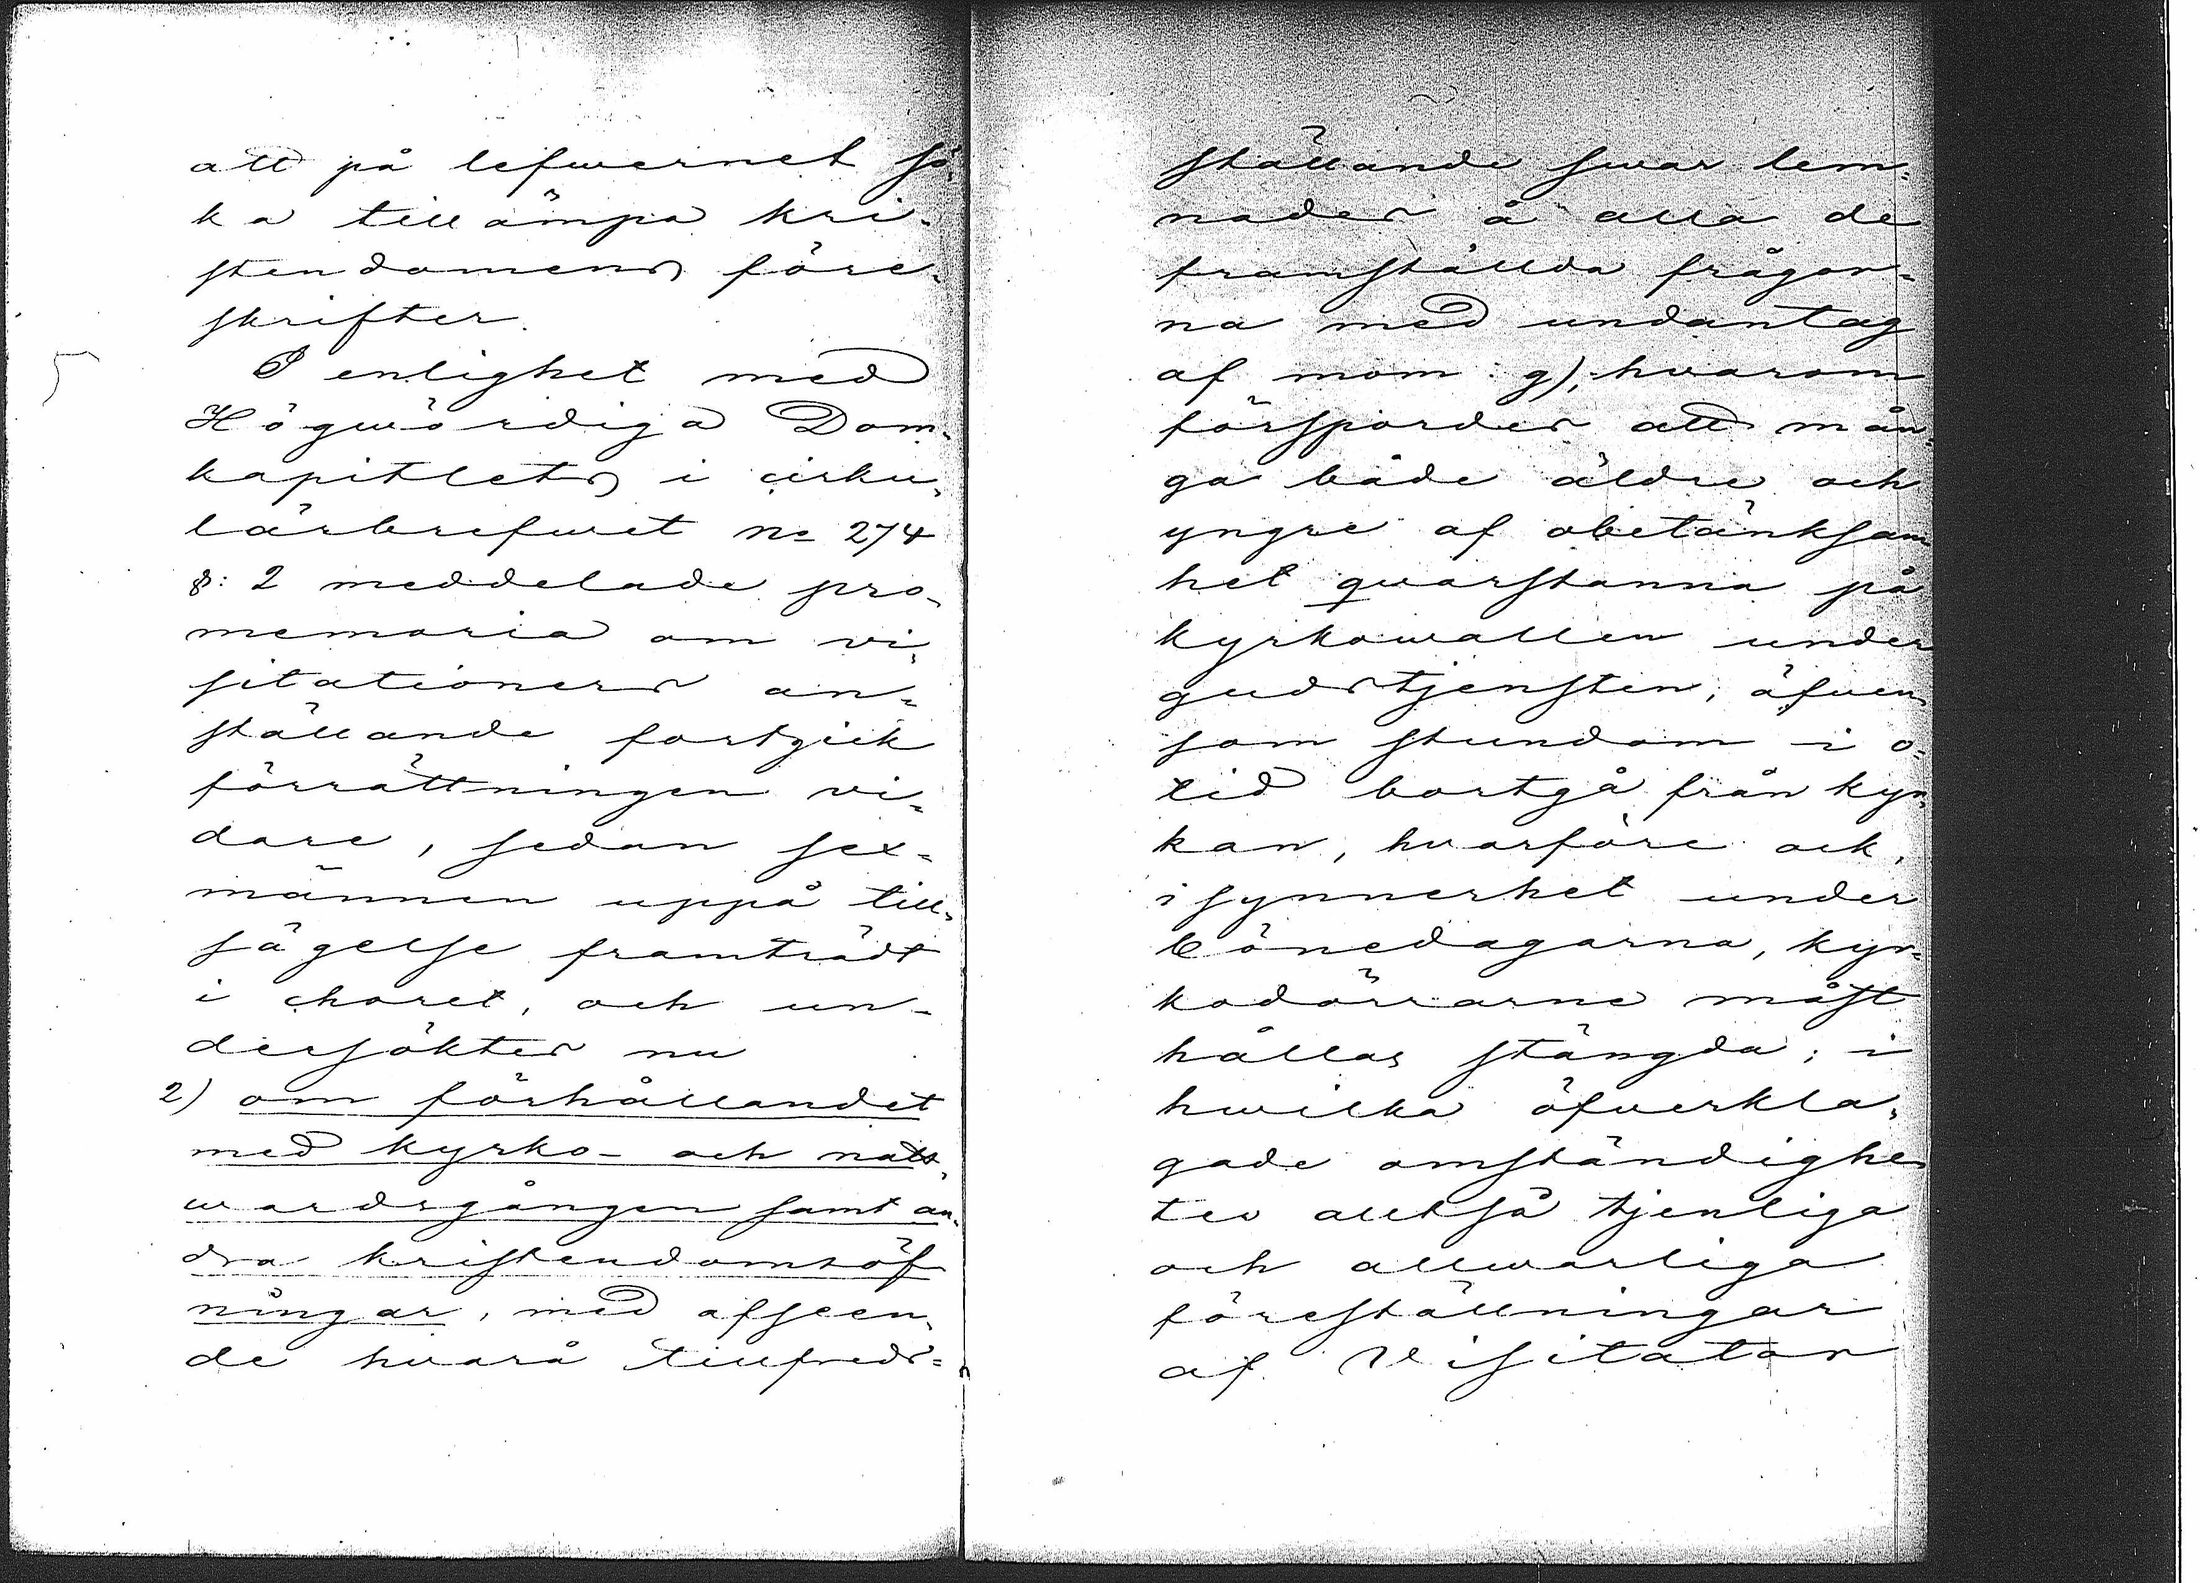 att på lefwernet sö-
ka tillämpa kri-
stendomens före-
skrifter.
I enlighet med
Högwördiga Dom-
kapitlets i cirku-
lärbrefwet No 274
§: 2 meddelade pro-
memoria om vi-
sitationers an-
ställande fortgick
förrättningen vi-
dare, sedan sex-
männen uppå till-
sägelse framträdt
i choret, och un-
dersöktes nu
2) om förhållandet
med kyrko- och natt-
wardsgången samt an-
dra kristendomsöf
ningar, med afseen-
de hvarå tillfreds-
ställande swar lem-
nades å alla de
framställda frågor-
na med undantag
af mom: g), hvarom
förspordes att mån-
ga både äldre och
yngre af obetänksam
het qwarstanna på
kyrkowallen under
gudstjensten, äfwen
som stundom i o-
tid bortgå från kyr-
kan, hvarföre ock,
isynnerhet under
bönedagarna, kyr-
kodörrarne måst
hållas stängda; i
hwilka öfverkla-
gade omständighe
ter alltså tjenliga
och allwarliga
föreställningar
af Visitator